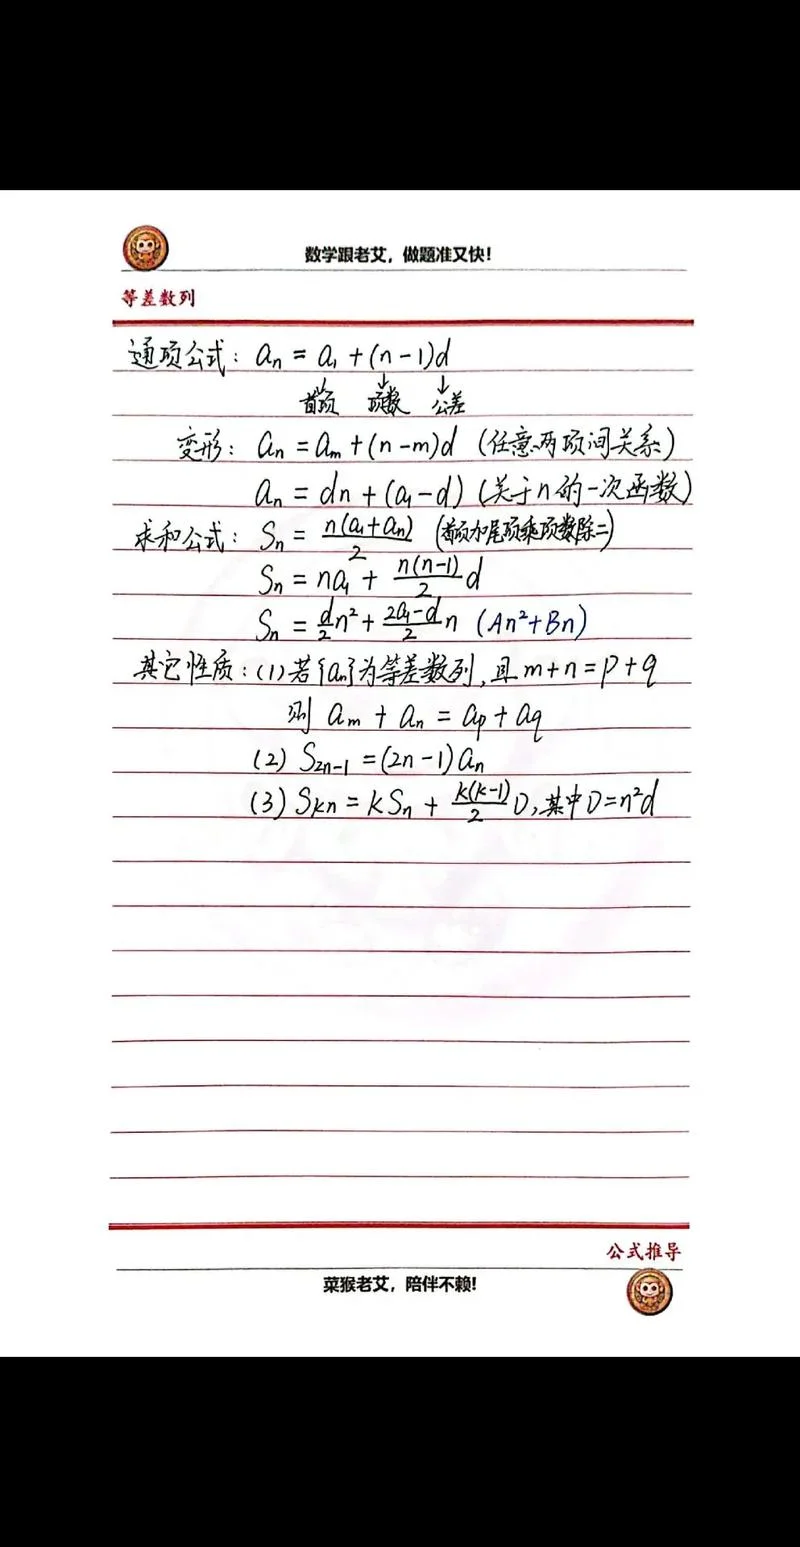 数学跟老艾，做题准又快！
等差数列
通项公式：aₙ = a₁ + (n-1)d
首项 项数 公差
变形：aₙ = aₘ + (n-m)d (任意两项间关系)
aₙ = dn + (a₁-d) (关于n的一次函数)
求和公式：Sₙ = n(a₁+aₙ)/2 (首项加尾项乘项数除二)
Sₙ = na₁ + n(n-1)/2 d
Sₙ = d/2 n² + (2a₁-d)/2 n (An²+Bn)
其它性质：(1) 若{aₙ}为等差数列，且m+n=p+q
则 aₘ + aₙ = aₚ + a_q
(2) S₂ₙ₋₁ = (2n-1)aₙ
(3) Sₖₙ = kSₙ + k(k-1)/2 D，其中D=n²d
公式推导
菜猴老艾，陪伴不赖！